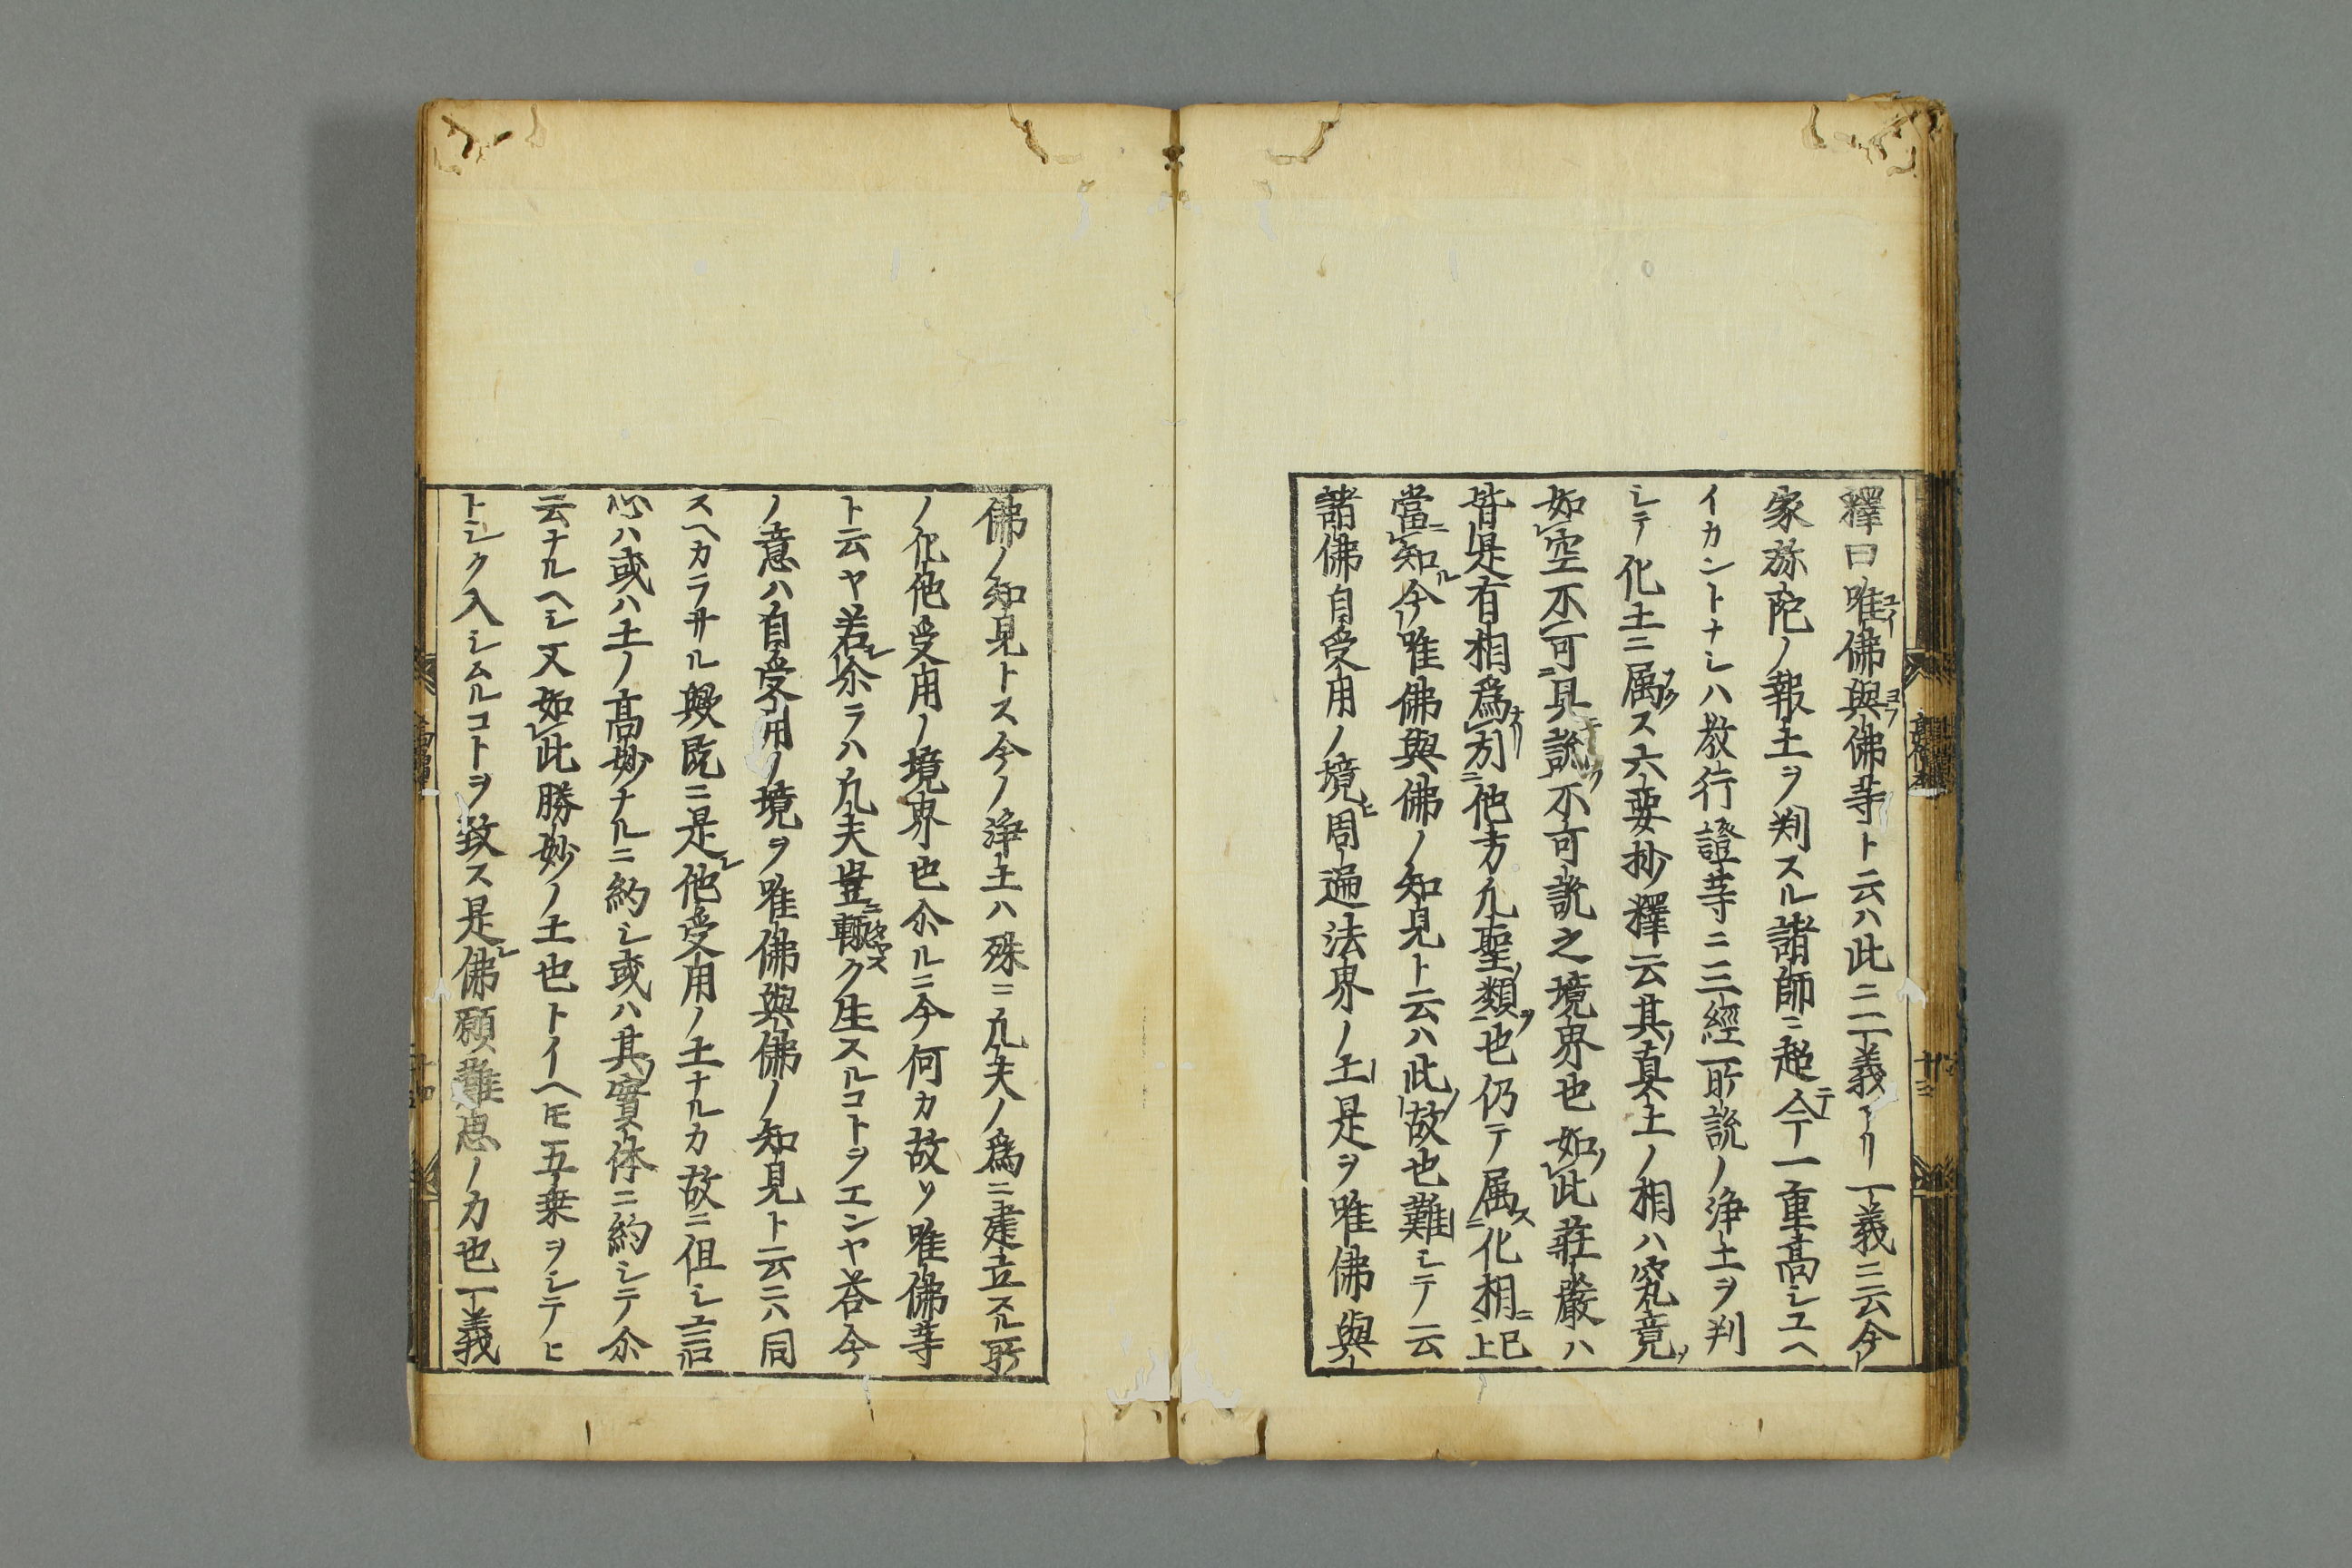 釋曰唯佛與佛等ト云ハ此ニ二義アリ一義ニ云今
家弥陀ノ報土ヲ判スル諸師ニ超テ一重高シユヘ
イカントナレハ教行證等ニ三經所説ノ浄土ヲ判
シテ化土ニ属ス六要抄釋云其真土ノ相ハ究竟
如空不可見説不可説之境界也如此莊嚴ハ
皆是有相爲別他方凢聖類也仍テ属化相已上
當知今唯佛與佛ノ知見ト云ハ此故也難シテ云
諸佛自受用ノ境周遍法界ノ土是ヲ唯佛與
佛ノ知見トス今ノ浄土ハ殊ニ凢夫ノ爲ニ建立スル所
ノ化他受用ノ境界也尒ルニ今何カ故ソ唯佛等
ト云ヤ若尒ラハ凢夫豈輙ク生スルコトヲエンヤ荅今
ノ意ハ自受用ノ境ヲ唯佛與佛ノ知見ト云ニハ同
スヘカラサル歟既ニ是他受用ノ土ナルカ故ニ但シ言
心ハ或ハ土ノ高妙ナルニ約シ或ハ其實体ニ約シテ尒
云ナルヘシ又如此勝妙ノ土也トイヘトモ五乗ヲシテヒ
トシク入シムルコトヲ致ス是佛願難思ノ力也一義